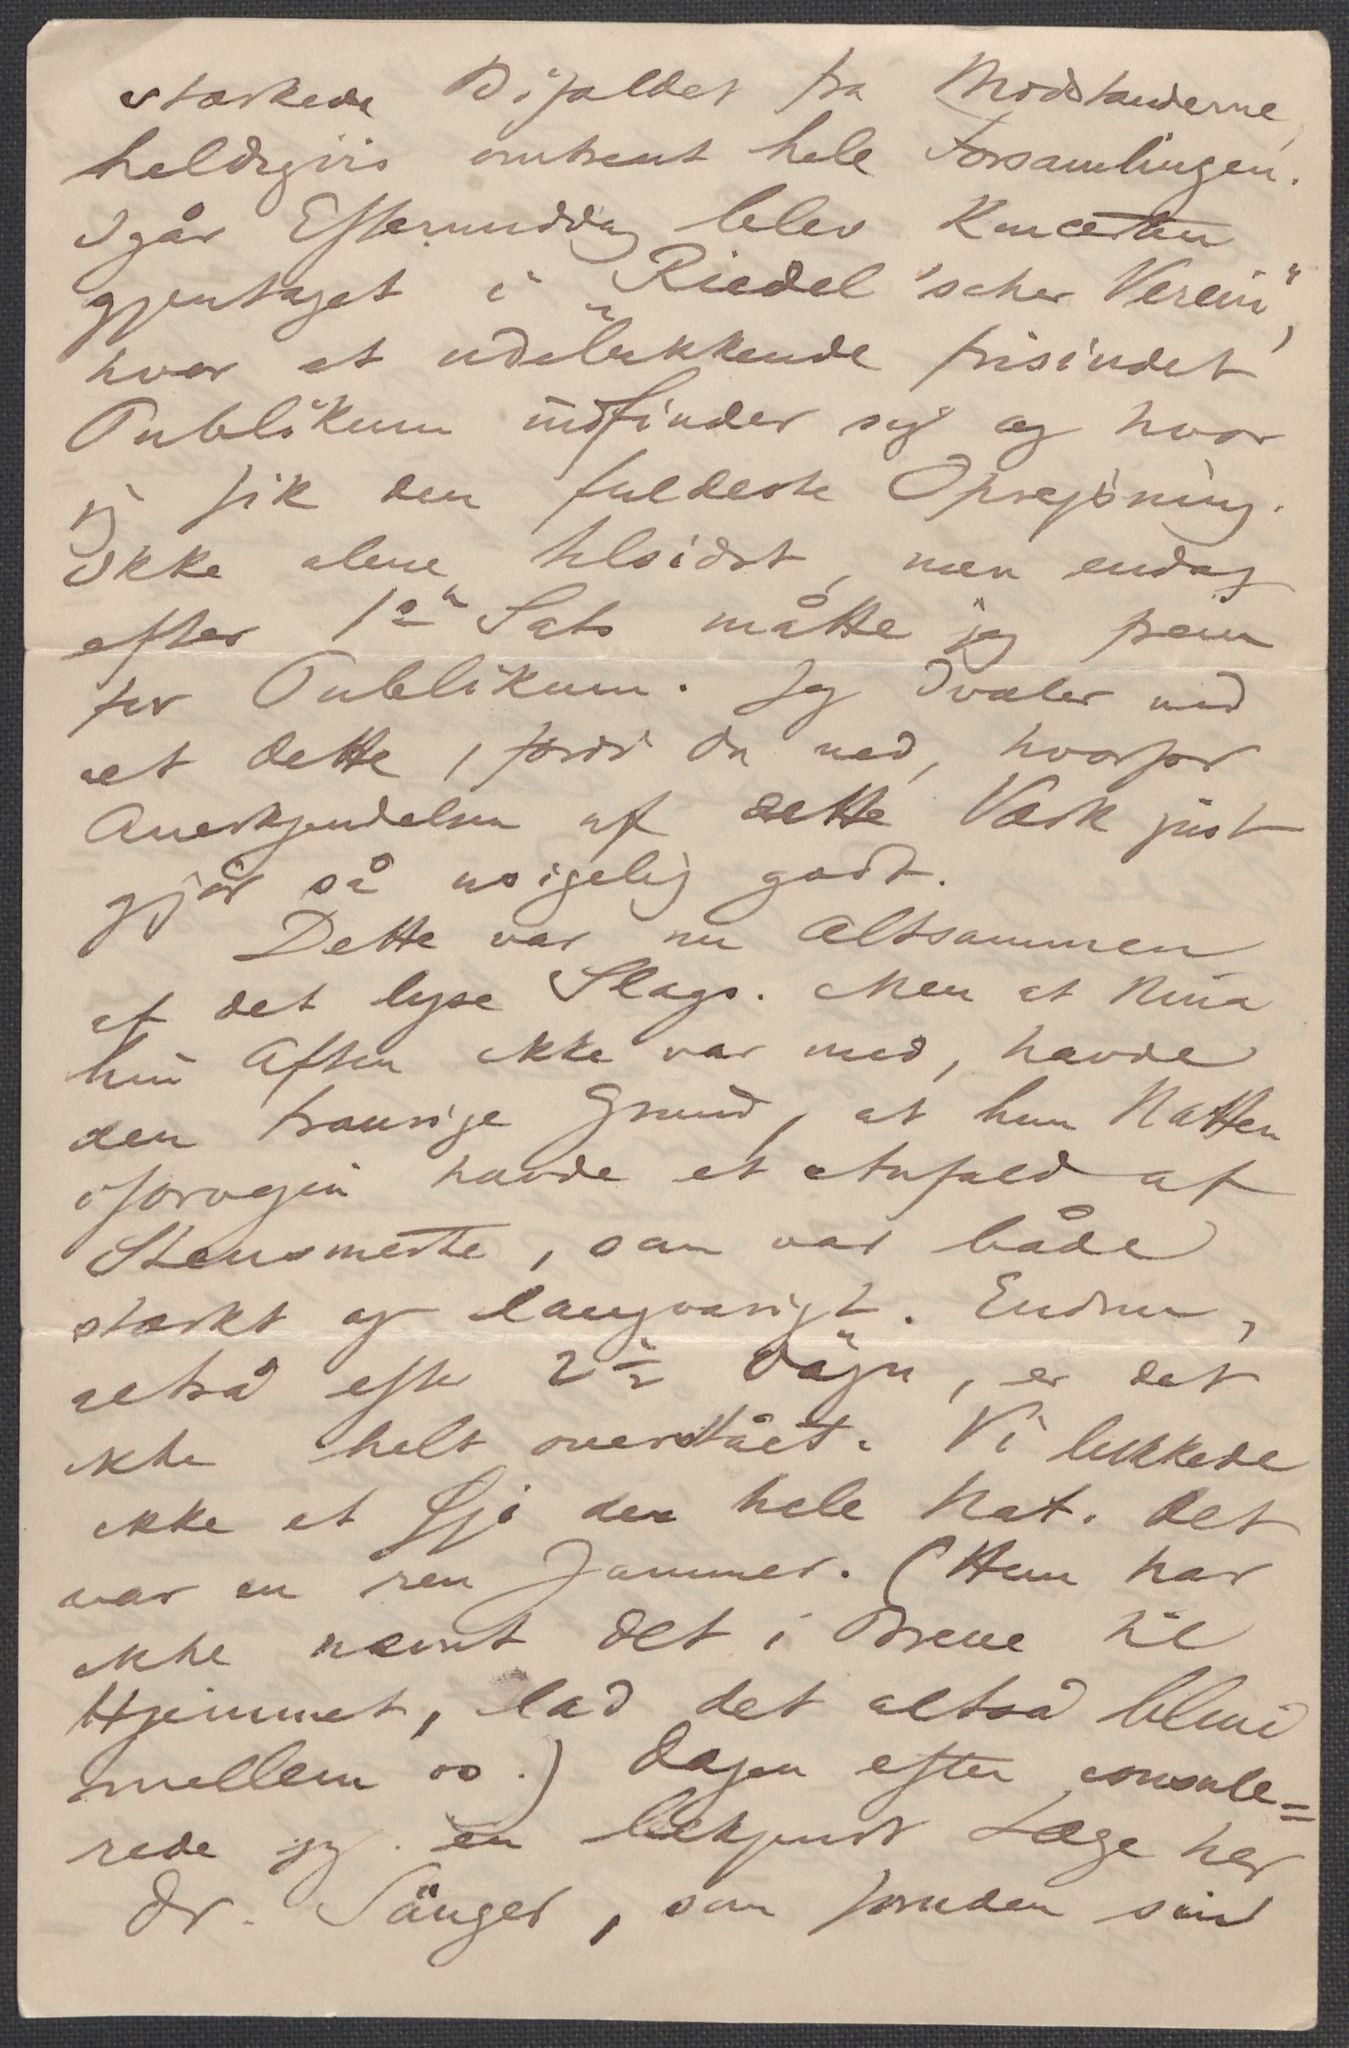 stærkede Bifaldet fra Modstanderne,
heldigvis omtrent hele Forsamlingen.
Igår Eftermiddag blev Koncerten
gjentaget i „Riedel'scher Verein",
hvor et udelukkende frisindet
Publikum indfinder sig og hvor
jeg fik den fuldeste Oprejsning.
Ikke alene tilsidst, men endog
efter 1ste Sats måtte jeg frem
for Publikum. Jeg dvæler ved
alt dette, fordi Du ved, hvorfor
Anerkjendelsen af dette Værk just
gjør så usigelig godt.
Dette var nu Altsammen
af det lyse Slags. Men at Nina
hin Aften ikke var med, havde
den traurige Grund, at hun Natten
iforvejen havde et Anfald af
Stensmerte, som var både
stærkt og langvarigt. Endnu,
altså efter 2½ Døgn, er det
ikke helt overstået. Vi lukkede
ikke et Øje den hele Nat. Det
var en ren Jammer. (Hun har
ikke nævnt det i Breve til
Hjemmet, lad det altså blive
mellem os.) Dagen efter consule=
rede jeg en bekjendt Læge her
Dr. Sänger, som foruden sin